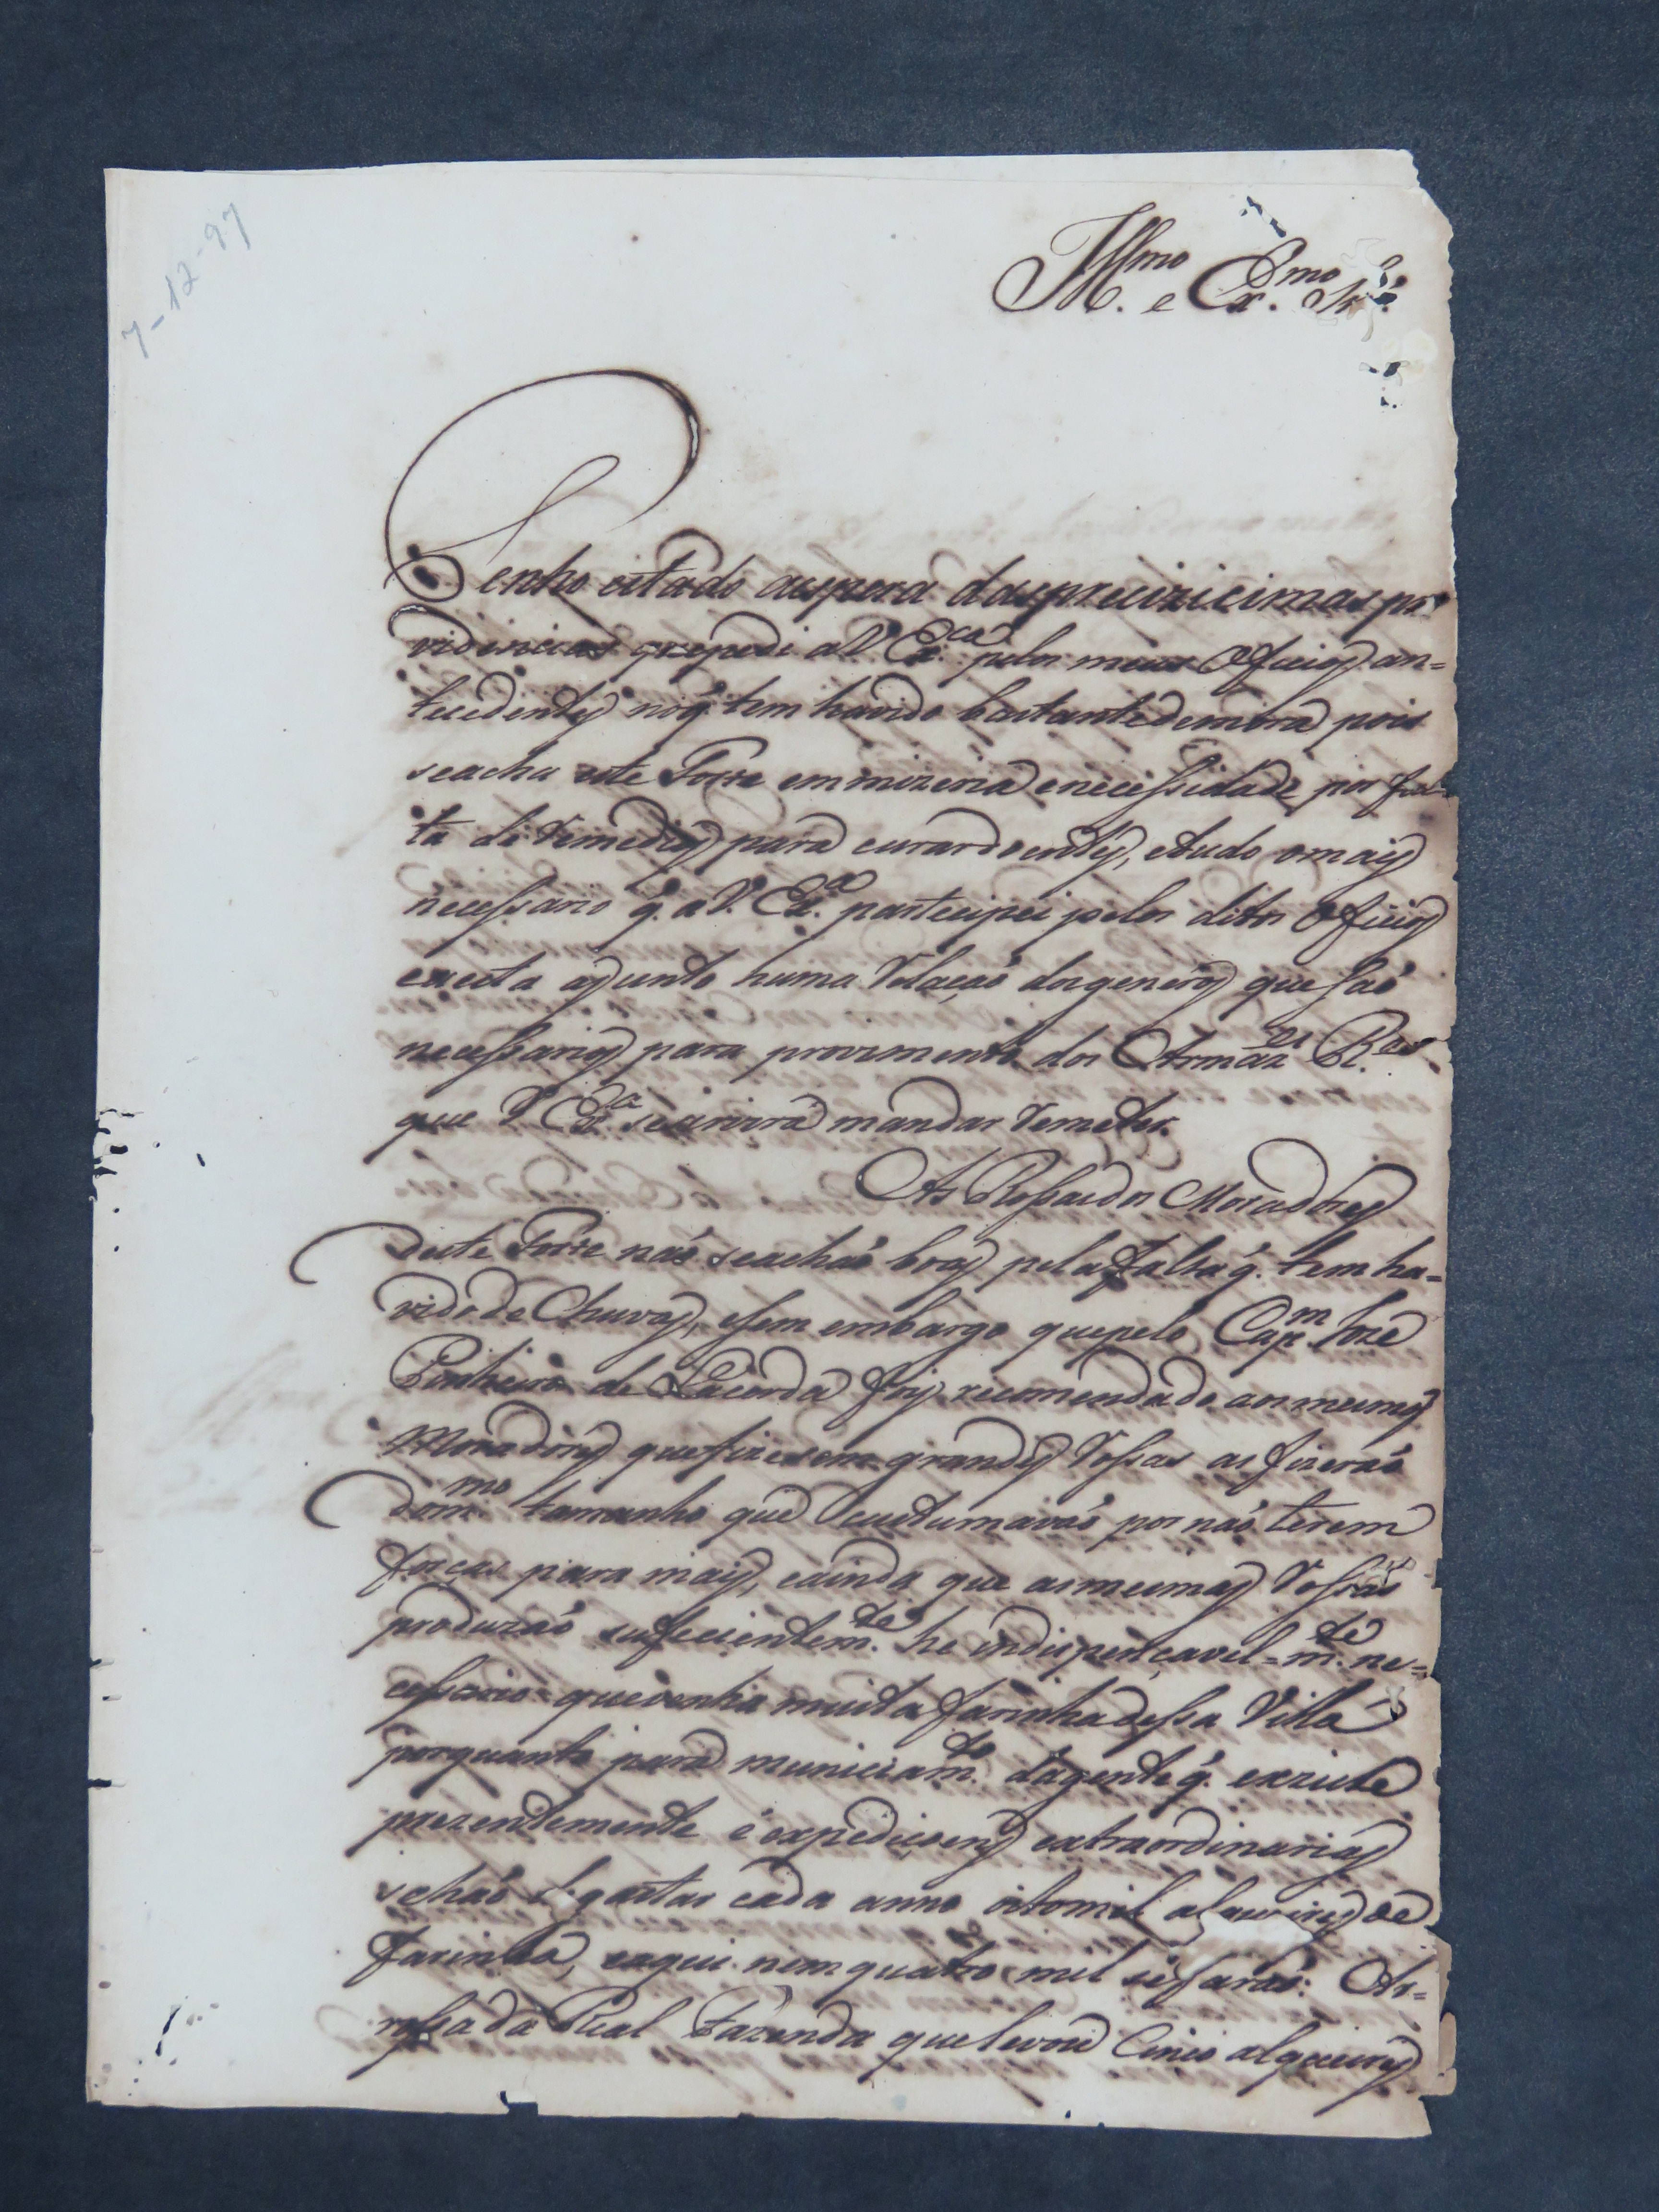 7-12-97
Ill.mo e Ex.mo Sr.
Tenho estado aespera dasprecizicimas pro
videncias q̃ expedi aV. Ex.ca pelos meus Oficios an=
tecedentes nóq̃ tem havido bastantedemora pois
seacha este Forte emmizeria enecessidade por fal
ta de Remedios para curardoentes, etudo omais
necessario q̃. aV. Ex.a partecipei pelos ditos Oficios
enesta ajunto huma Relação dosgeneros que são
necessarios para provimento dos Armaz.es R.es
que V Ex.a seservirá mandar Remeter.
As Rossasdos Moradores
deste Forte não seachão boas pelafalta q̃. tem ha=
vidode Chuvas, esem embargo quepelo Cap.m Joze
Pinheiro de Lacerda foy recomendado aosmesmos
Moradores quefizesem grandes Rossas as fizerão
dom.mo tamanho que custumavão por não terem
forças para mais, eainda que asmesmas Rossas
produzão suficientem.te he indispençavel=m.te ne=
cessario quevenha muita farinhadessa Villa
porquanto para municiam.to dagente q̃. exziste
prezentemente e expediçoens extraordinarias
sehão de gastar cada anno oitomil alqueires de
farinha, eaqui nem quatro mil sefarão: Ar=
rossada Real Fazenda quelevou Cinco alqueires